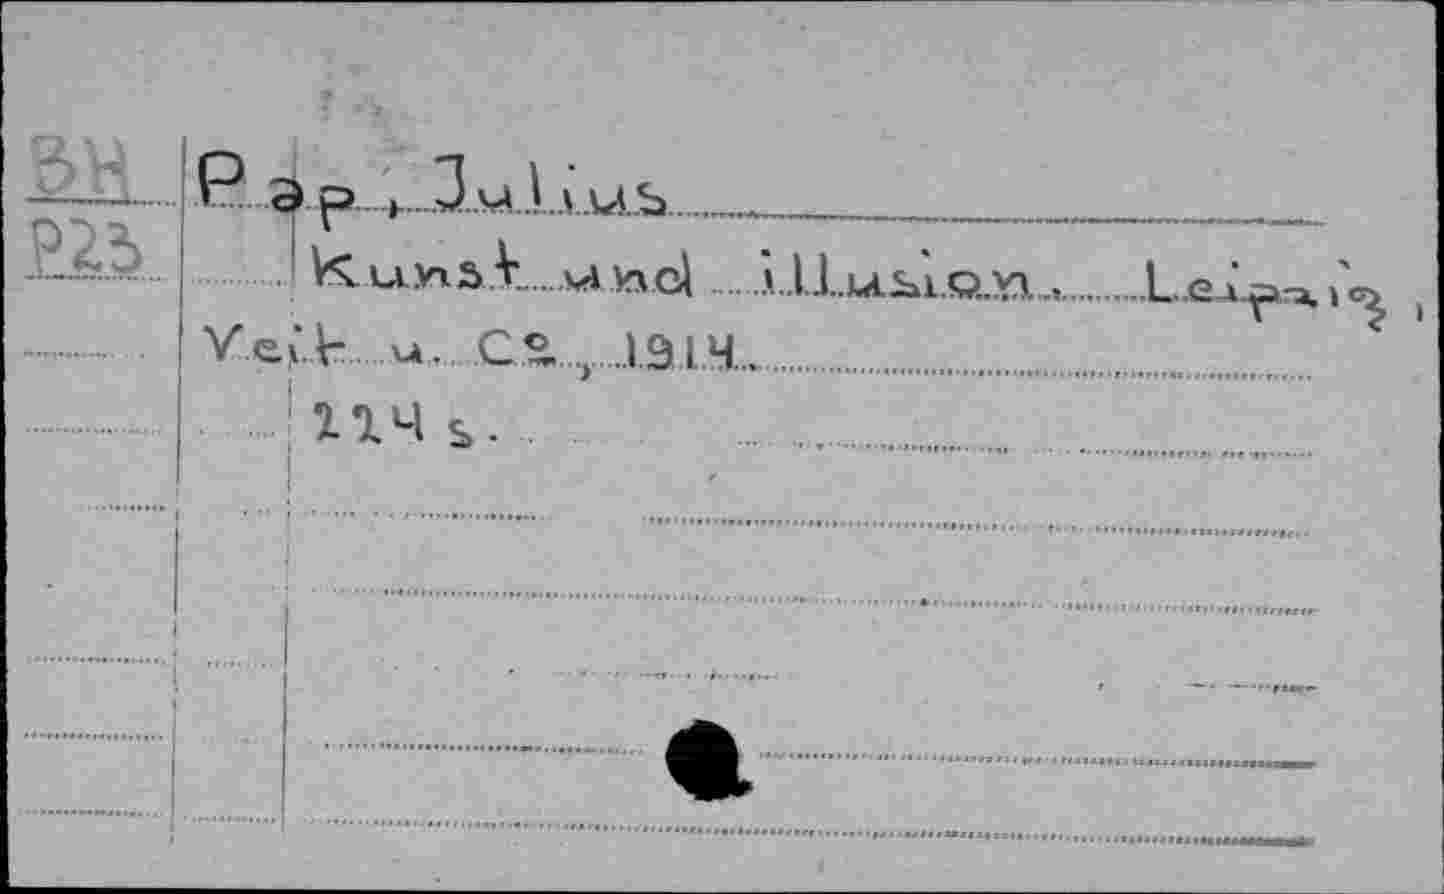 BH Pap, Julius
P23 Kunst und illusion. Leipzig,
Veit u. Co., 1914.
224 s.